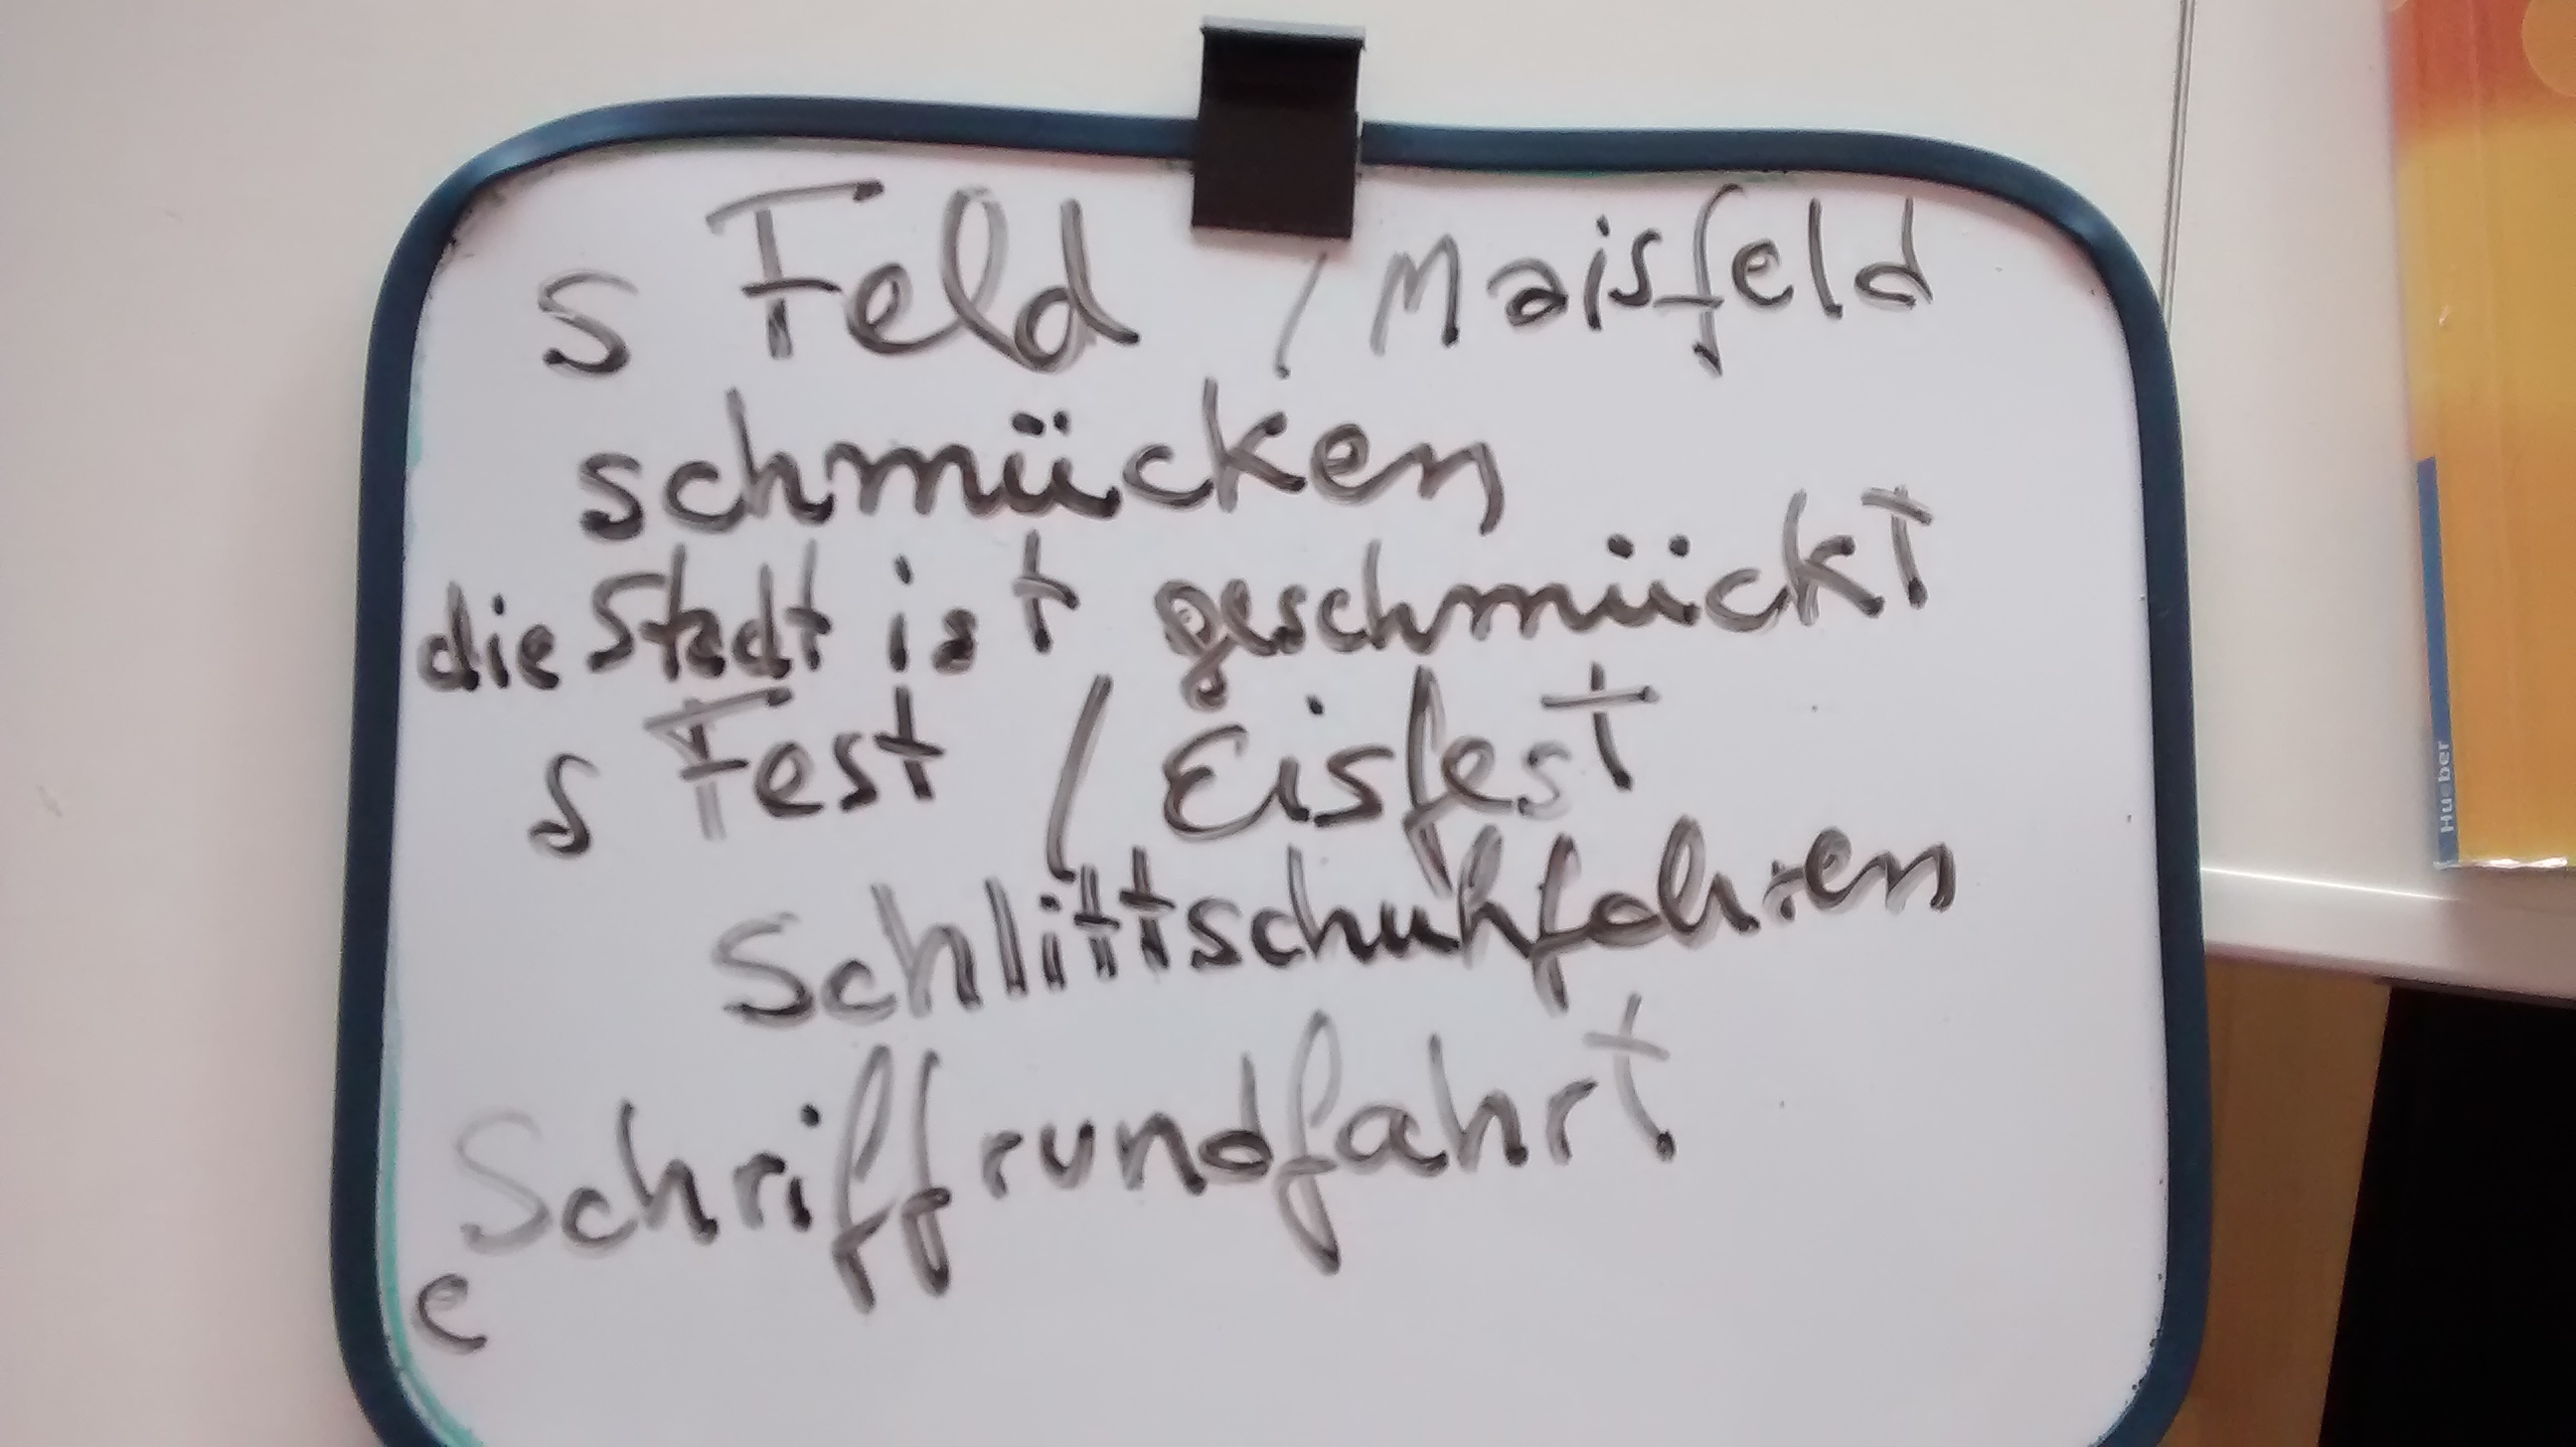 s Feld / Maisfeld
schmücken
die Stadt ist geschmückt
s Fest / Eisfest
Schlittschuhfahren
Schriffrundfahrt
e
Hueber